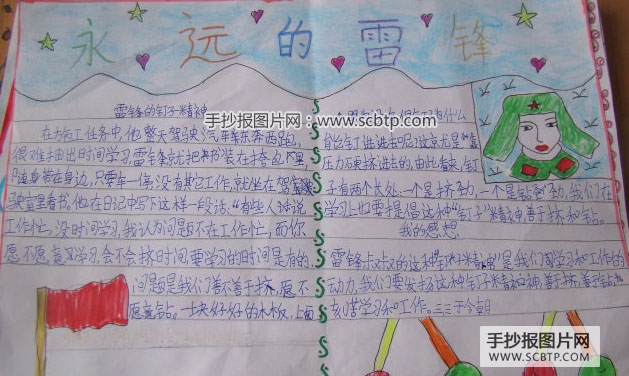 手抄报图片网：
www.scbtp.com
永远的雷锋
雷锋的钉子精神
在施工任务中，他整天驾驶汽车东奔西跑，
很难抽出时间学习，雷锋就把书装在挎包里，
随身带在身边，只要车一停，没有其它工作，就坐在驾
驶室里看书。他在日记中写下这样一段话：“有些人说
工作忙，没时间学习，我认为问题不在工作忙，而你
愿不愿意学习，会不会挤时间，要学习的时间是有的，
问题是我们善不善于挤，愿不
愿意钻。一块好好的木板，上面
一个眼也没有，但钉子为什么
能钉进去呢？这就是靠
压力硬挤进去的，由此看来，钉
子有两个长处：一个是挤劲，一个是钻劲，我们在
学习上也要提倡这种“钉子”精神，善于挤和钻。
我的感想
雷锋叔叔的这种“钉子精神”是我们学习和工作的
动力，我们要发扬这种钉子精神，善于挤，善于钻，
刻苦学习和工作。
手抄报图片网
www.SCBTP.com